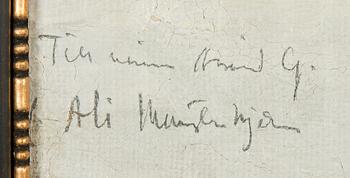 Till minn Arvid G.
Ali Munsterhjelm